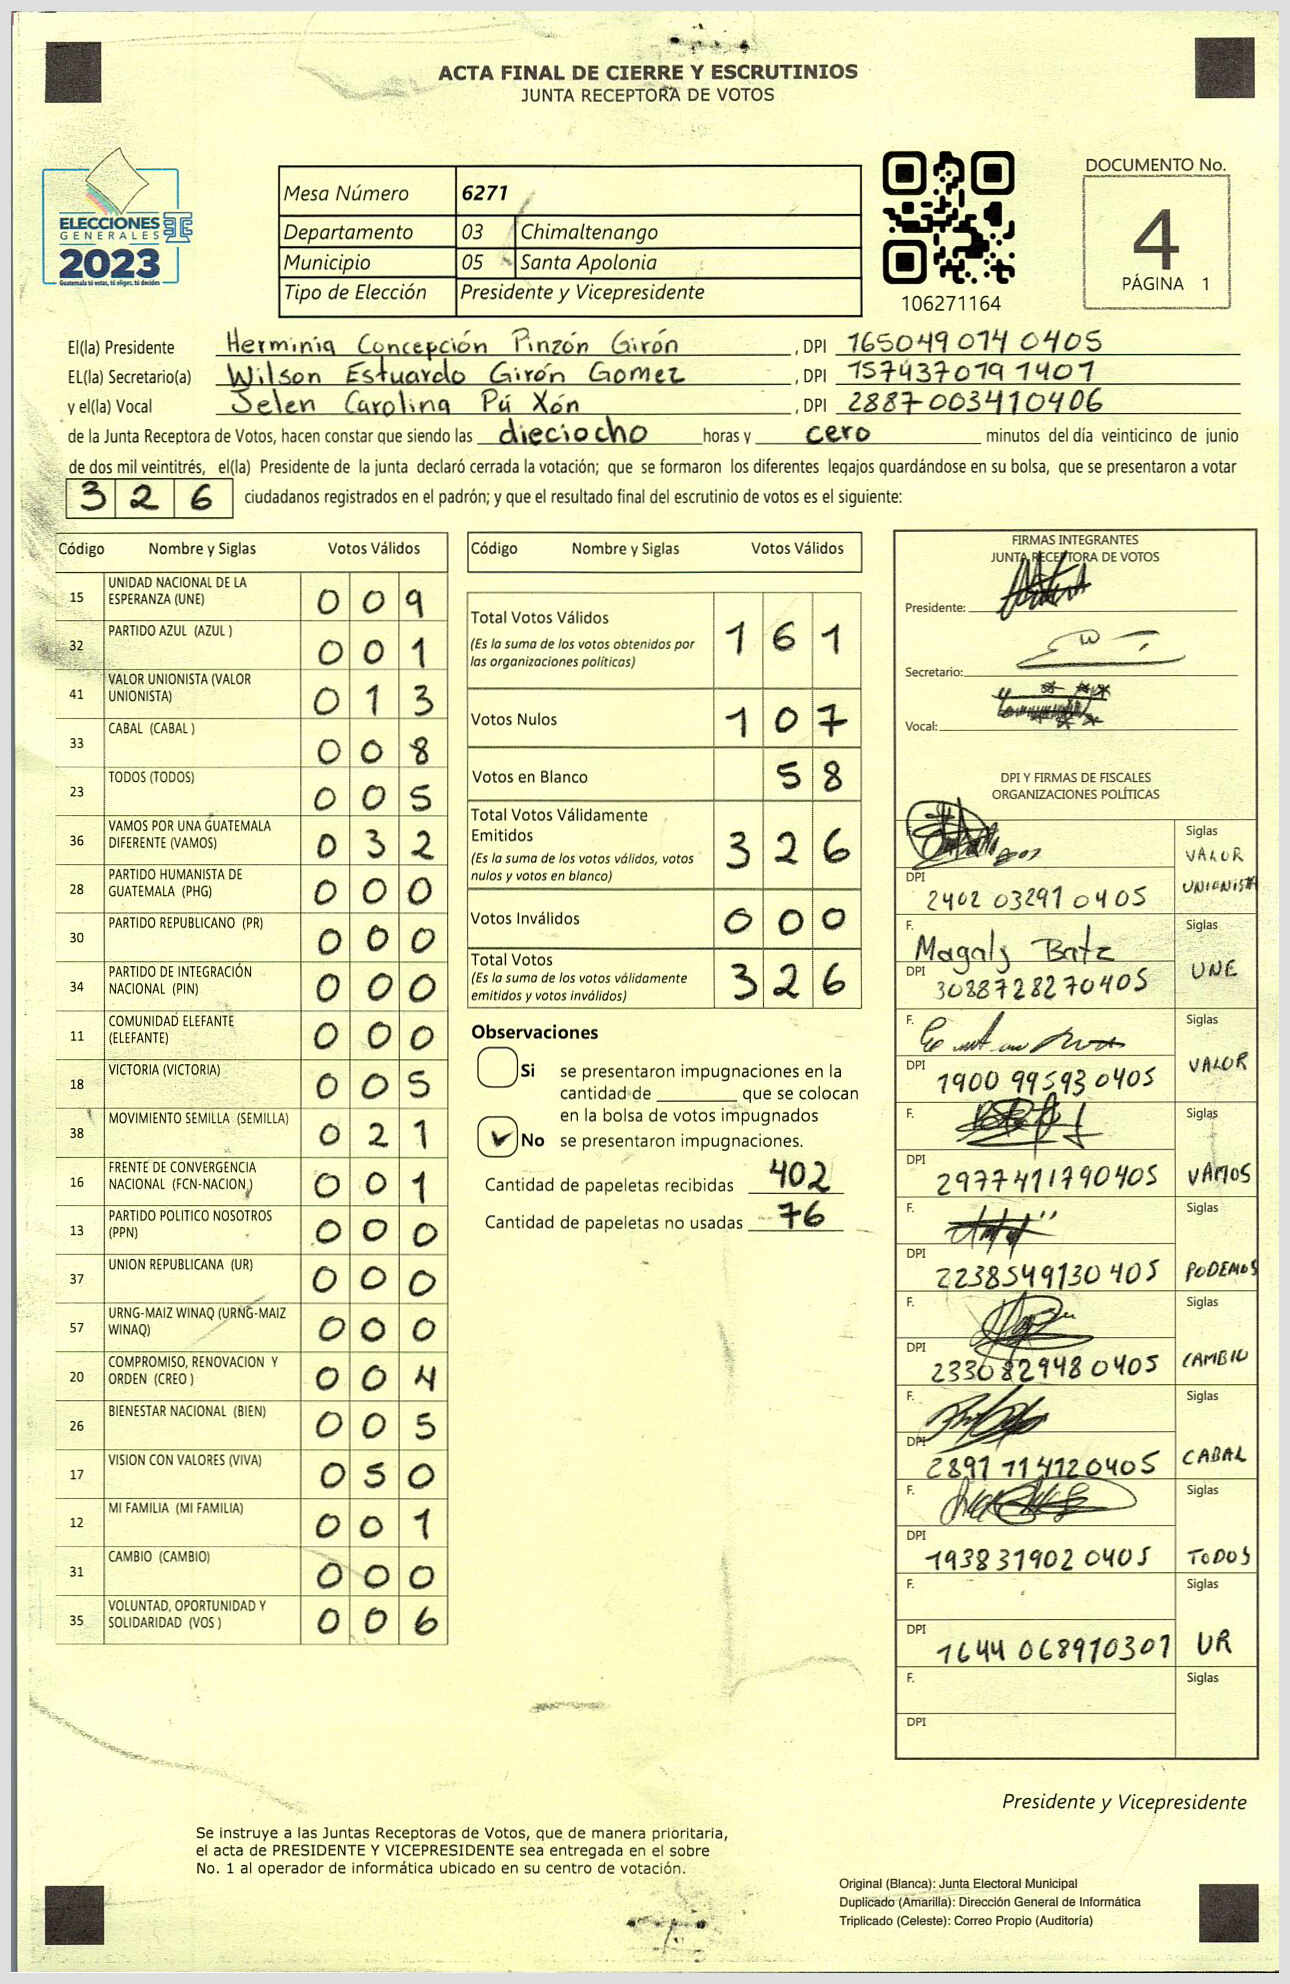 ACTA FINAL DE CIERRE Y ESCRUTINIOS
JUNTA RECEPTORA DE VOTOS
ELECCIONES
GENERALES
2023
Guatemala tú votas, tú eliges, tú decides
Mesa Número 6271
Departamento 03 Chimaltenango
Municipio 05 Santa Apolonia
Tipo de Elección Presidente y Vicepresidente
106271164
DOCUMENTO No.
4
PÁGINA 1
El(la) Presidente Herminia Concepción Pinzón Girón , DPI 165049014 0405
EL(la) Secretario(a) Wilson Estuardo Girón Gomez , DPI 157437019 1401
y el(la) Vocal Jelen Carolina Pú Xón , DPI 2887003410406
de la Junta Receptora de Votos, hacen constar que siendo las dieciocho horas y cero minutos del día veinticinco de junio
de dos mil veintitrés, el(la) Presidente de la junta declaró cerrada la votación; que se formaron los diferentes legajos guardándose en su bolsa, que se presentaron a votar
326 ciudadanos registrados en el padrón; y que el resultado final del escrutinio de votos es el siguiente:
Código Nombre y Siglas Votos Válidos
15 UNIDAD NACIONAL DE LA
ESPERANZA (UNE) 0 0 9
32 PARTIDO AZUL (AZUL ) 0 0 1
41 VALOR UNIONISTA (VALOR
UNIONISTA) 0 1 3
33 CABAL (CABAL ) 0 0 8
23 TODOS (TODOS) 0 0 5
36 VAMOS POR UNA GUATEMALA
DIFERENTE (VAMOS) 0 3 2
28 PARTIDO HUMANISTA DE
GUATEMALA (PHG) 0 0 0
30 PARTIDO REPUBLICANO (PR) 0 0 0
34 PARTIDO DE INTEGRACIÓN
NACIONAL (PIN) 0 0 0
11 COMUNIDAD ELEFANTE
(ELEFANTE) 0 0 0
18 VICTORIA (VICTORIA) 0 0 5
38 MOVIMIENTO SEMILLA (SEMILLA) 0 2 1
16 FRENTE DE CONVERGENCIA
NACIONAL (FCN-NACION) 0 0 1
13 PARTIDO POLITICO NOSOTROS
(PPN) 0 0 0
37 UNION REPUBLICANA (UR) 0 0 0
57 URNG-MAIZ WINAQ (URNG-MAIZ
WINAQ) 0 0 0
20 COMPROMISO, RENOVACION Y
ORDEN (CREO ) 0 0 4
26 BIENESTAR NACIONAL (BIEN) 0 0 5
17 VISION CON VALORES (VIVA) 0 5 0
12 MI FAMILIA (MI FAMILIA) 0 0 1
31 CAMBIO (CAMBIO) 0 0 0
35 VOLUNTAD, OPORTUNIDAD Y
SOLIDARIDAD (VOS ) 0 0 6
Código Nombre y Siglas Votos Válidos
Total Votos Válidos 1 6 1
(Es la suma de los votos obtenidos por
las organizaciones políticas)
Votos Nulos 1 0 7
Votos en Blanco 5 8
Total Votos Válidamente
Emitidos 3 2 6
(Es la suma de los votos válidos, votos
nulos y votos en blanco)
Votos Inválidos 0 0 0
Total Votos 3 2 6
(Es la suma de los votos válidamente
emitidos y votos inválidos)
Observaciones
Si se presentaron impugnaciones en la
cantidad de ________ que se colocan
en la bolsa de votos impugnados
No se presentaron impugnaciones.
Cantidad de papeletas recibidas 402
Cantidad de papeletas no usadas 76
FIRMAS INTEGRANTES
JUNTA RECEPTORA DE VOTOS
Presidente:
Secretario:
Vocal:
DPI Y FIRMAS DE FISCALES
ORGANIZACIONES POLÍTICAS
F. Siglas
VALOR
UNIONISTA
DPI 2402 03291 0405
F. Magaly Batz Siglas
UNE
DPI 3088728270405
F. Siglas
VALOR
DPI 1900 99593 0405
F. Siglas
VAMOS
DPI 2977411790405
F. Siglas
PODEMOS
DPI 2238549130405
F. Siglas
CAMBIO
DPI 233082948 0405
F. Siglas
CABAL
DPI 2891 114120405
F. Siglas
TODOS
DPI 193831902 0405
F. Siglas
UR
DPI 1644 068910301
F. Siglas
DPI
Presidente y Vicepresidente
Se instruye a las Juntas Receptoras de Votos, que de manera prioritaria,
el acta de PRESIDENTE Y VICEPRESIDENTE sea entregada en el sobre
No. 1 al operador de informática ubicado en su centro de votación.
Original (Blanca): Junta Electoral Municipal
Duplicado (Amarilla): Dirección General de Informática
Triplicado (Celeste): Correo Propio (Auditoría)